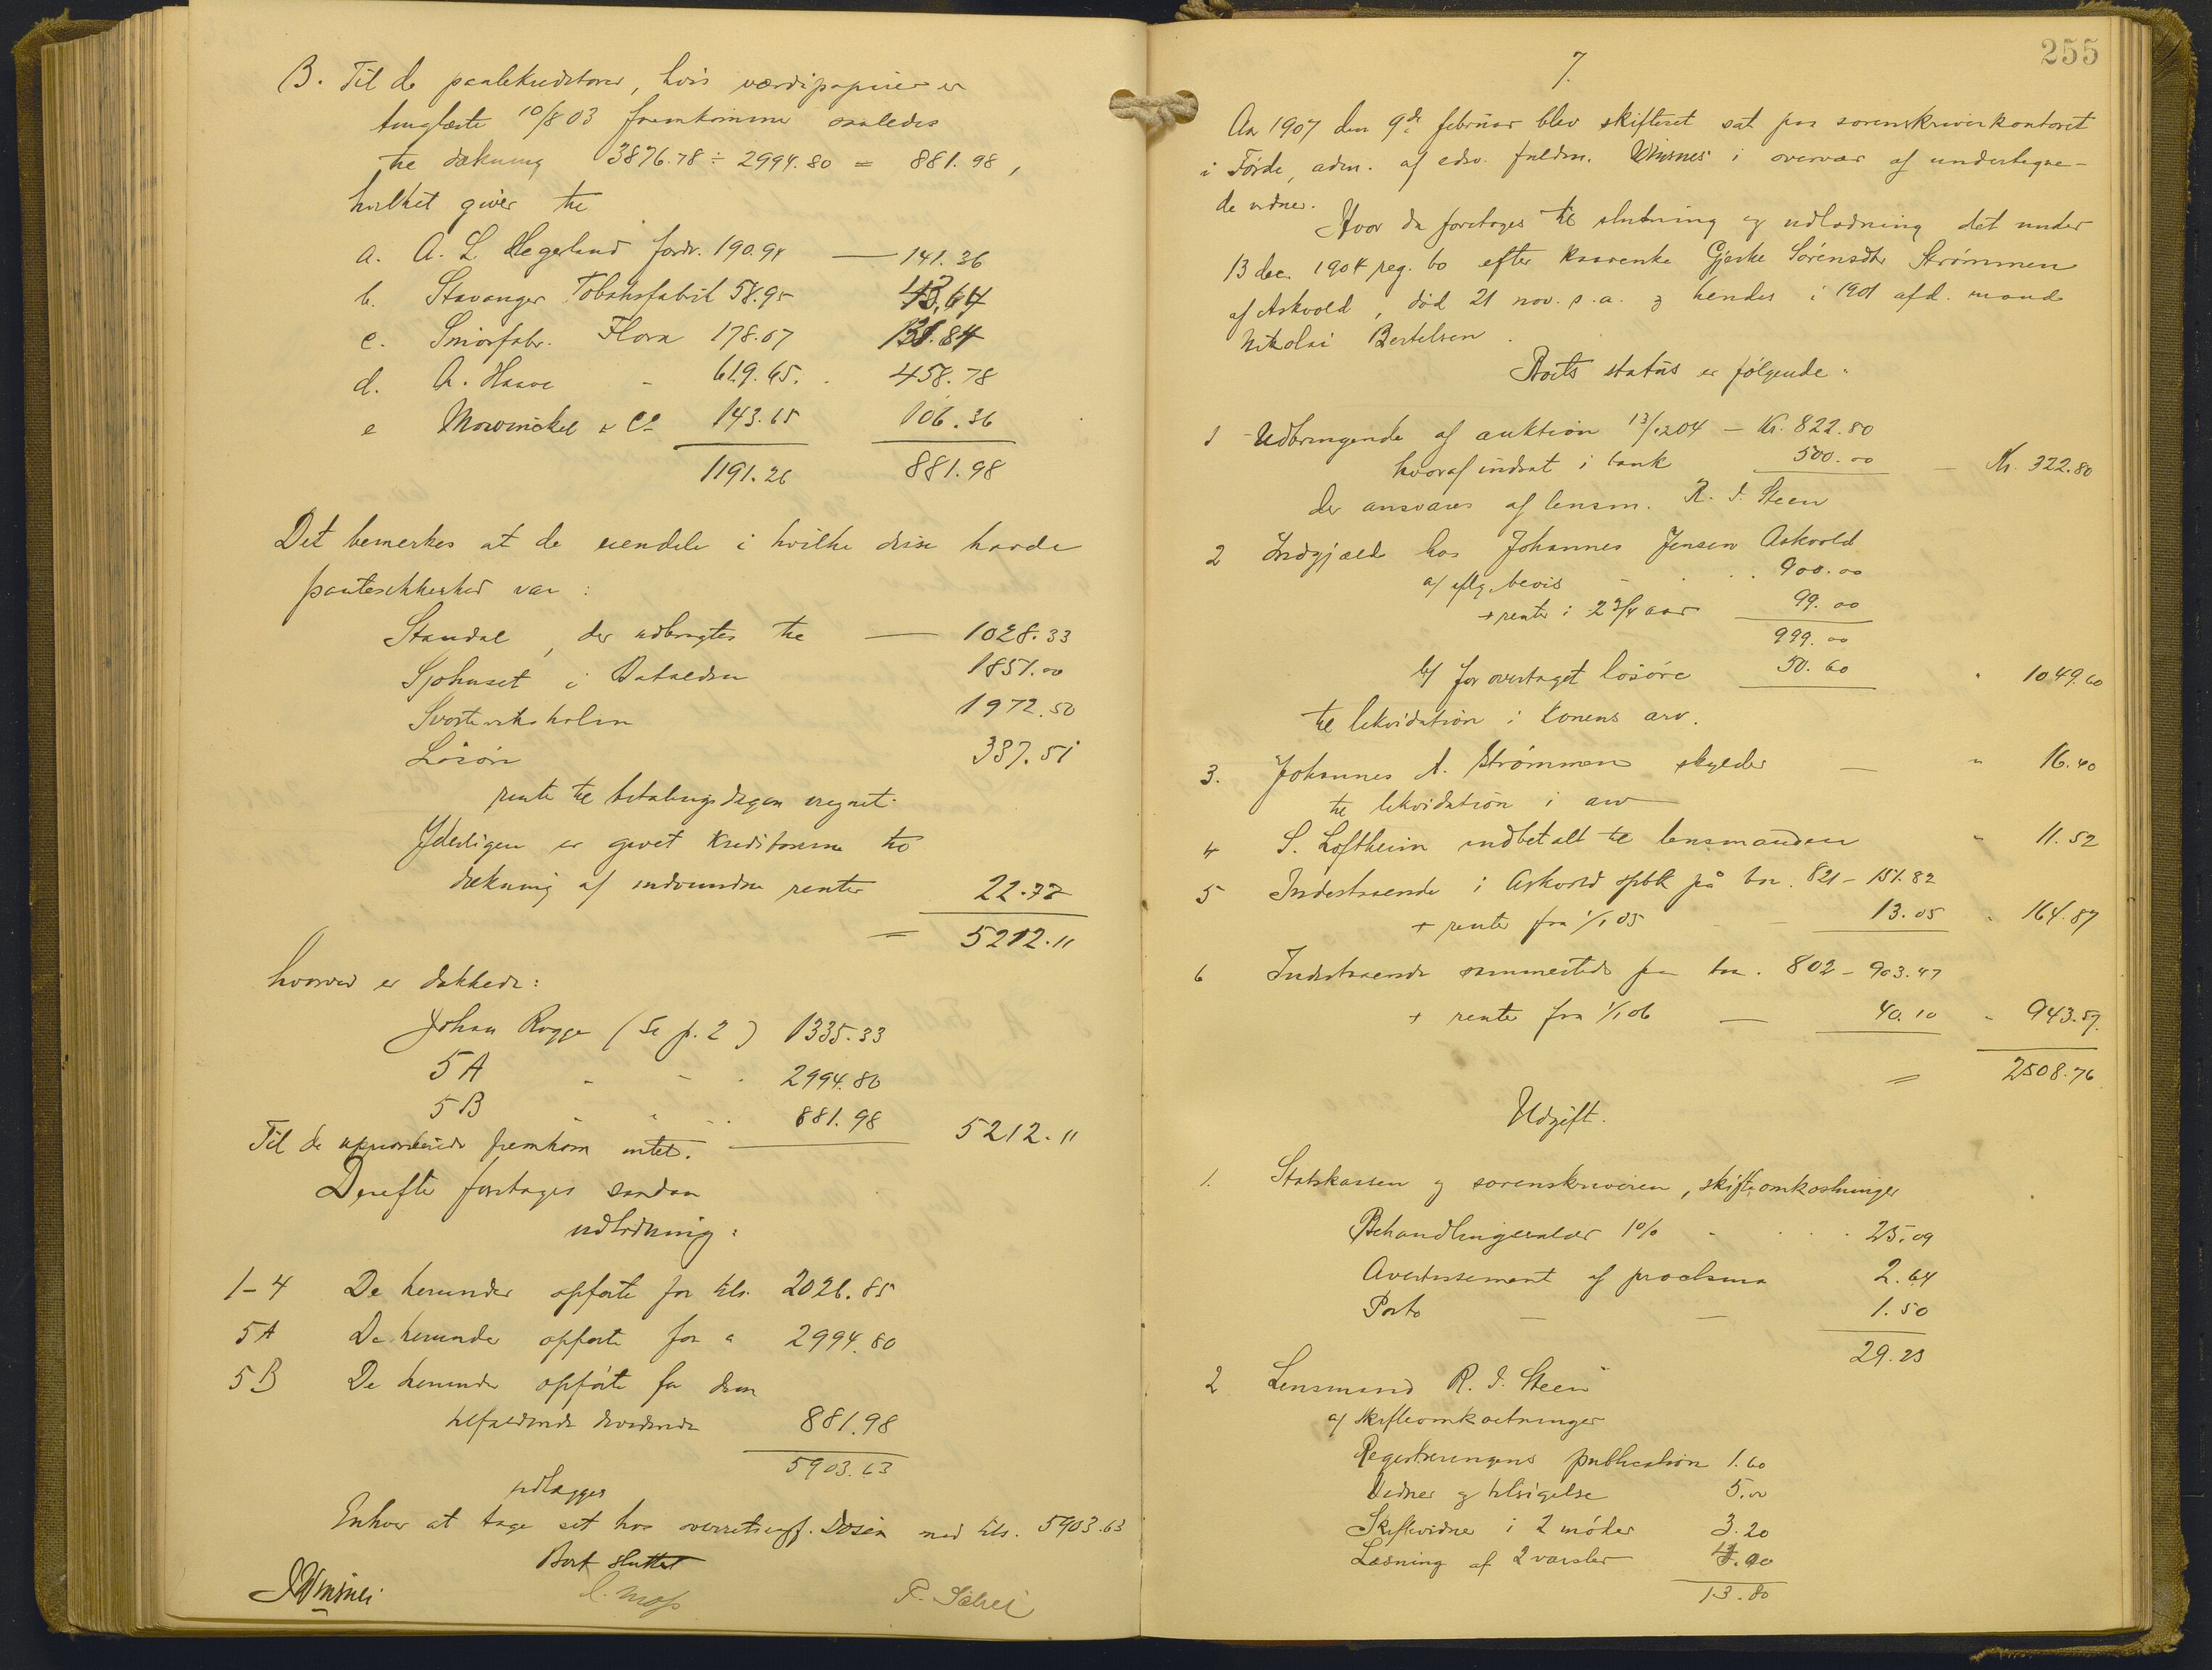 B. Til de pantekreditorer, hvis værdipapirer er
tinglæste 10/8 03 fremkommer saaledes
til dækning 3876.78 ÷ 2994.80 = 881.98,
hvilket giver til
a. A. L. Hegerland fordr. 190.94 — 141.36
b. Stavanger Tobaksfabrik 58.95 43.64
c. Smörfabr. Flora 178.07 131.84
d. A. Haave - 619.65. 458.78
e Mowinckel & Co 143.65 106.36
1191.26 881.98
Det bemerkes at de eiendele i hvilke disse havde
pantesikkerhed var:
Standal, der udbragtes til — 1028.33
Sjøhuset i Batalden 1851.00
Svartevikholm 1972.50
Lösöre 337.51
rente til betalingsdagen iregnet.
Yderligere er givet kreditorerne til
dækning af indvundne renter 22.77
= 5212.11
hvorved er dækkede:
Johan Rogge (se p. 2) 1335.33
5A - - . 2994.80
5B - " . . 881.98 5212.11
Til de uprioriterede fremkom intet.
Derefter foretages saadan
udlodning:
1-4 De herunder opførte for tils. 2026.85
5A De herunder opførte for " 2994.80
5B De herunder opførte for den
tilfaldende dividende 881.98
5903.63
udlægges
Enhver at tage sit hos overretssagf. med tils. 5903.63
Boet sluttet
C. Moss
7.
255
Aar 1907 den 9de februar blev skifteret sat paa sorenskriverkontoret
i Førde, adm. af edsv. fuldm. i overvær af undertegne-
de vidner.
Hvor da foretoges til slutning og udlodning det under
13 dec. 1904 reg. bo efter kaarenke Gjertke Sörensdtr Strømmen
af Askvold, död 21 nov. s.a. og hendes i 1901 afd. mand
Nikolai Bertelsen.
Boets status er følgende:
1 Udbringende af auktion 13/1204 — Kr. 822.80
hvoraf indsat i bank 500.00 — Kr. 322.80
der ansvares af lensm. R. J. Steen
2 Indgjæld hos Johannes Jensen Askvold
a/ iflg. bevis - . . . 900.00
+ rente i 2 3/4 aar 99.00
999.00
b/ for overtaget lösöre 50.60 " 1049.60
til likvidation i konens arv.
3. Johannes A. Strømmen skylder — " 16.40
til likvidation i arv
4 S. Loftheim indbetalt til lensmanden " 11.52
5 Indestaaende i Askvold spbk på bn. 821 – 151.82
+ rente fra 1/1 05 - — 13.05 " 164.87
6 Indestaaende sammesteds paa bn. 802 – 903.47
+ rente fra 1/1 06 — 40.10 " 943.57
= 2508.76
Udgift.
1. Statskassen og sorenskriveren, skifteomkostninger
Behandlingssalær 1% - . . . 25.09
Avertissement af proclama 2.64
Porto — — 1.50
29.23
2 Lensmand R. J. Steen
a/ skifteomkostninger
Registreringens publication 1.60
Vidner og tilsigelse 5.00
Skiftevidner i 2 möder 3.20
Læsning af 2 varsler 4.00
13.80